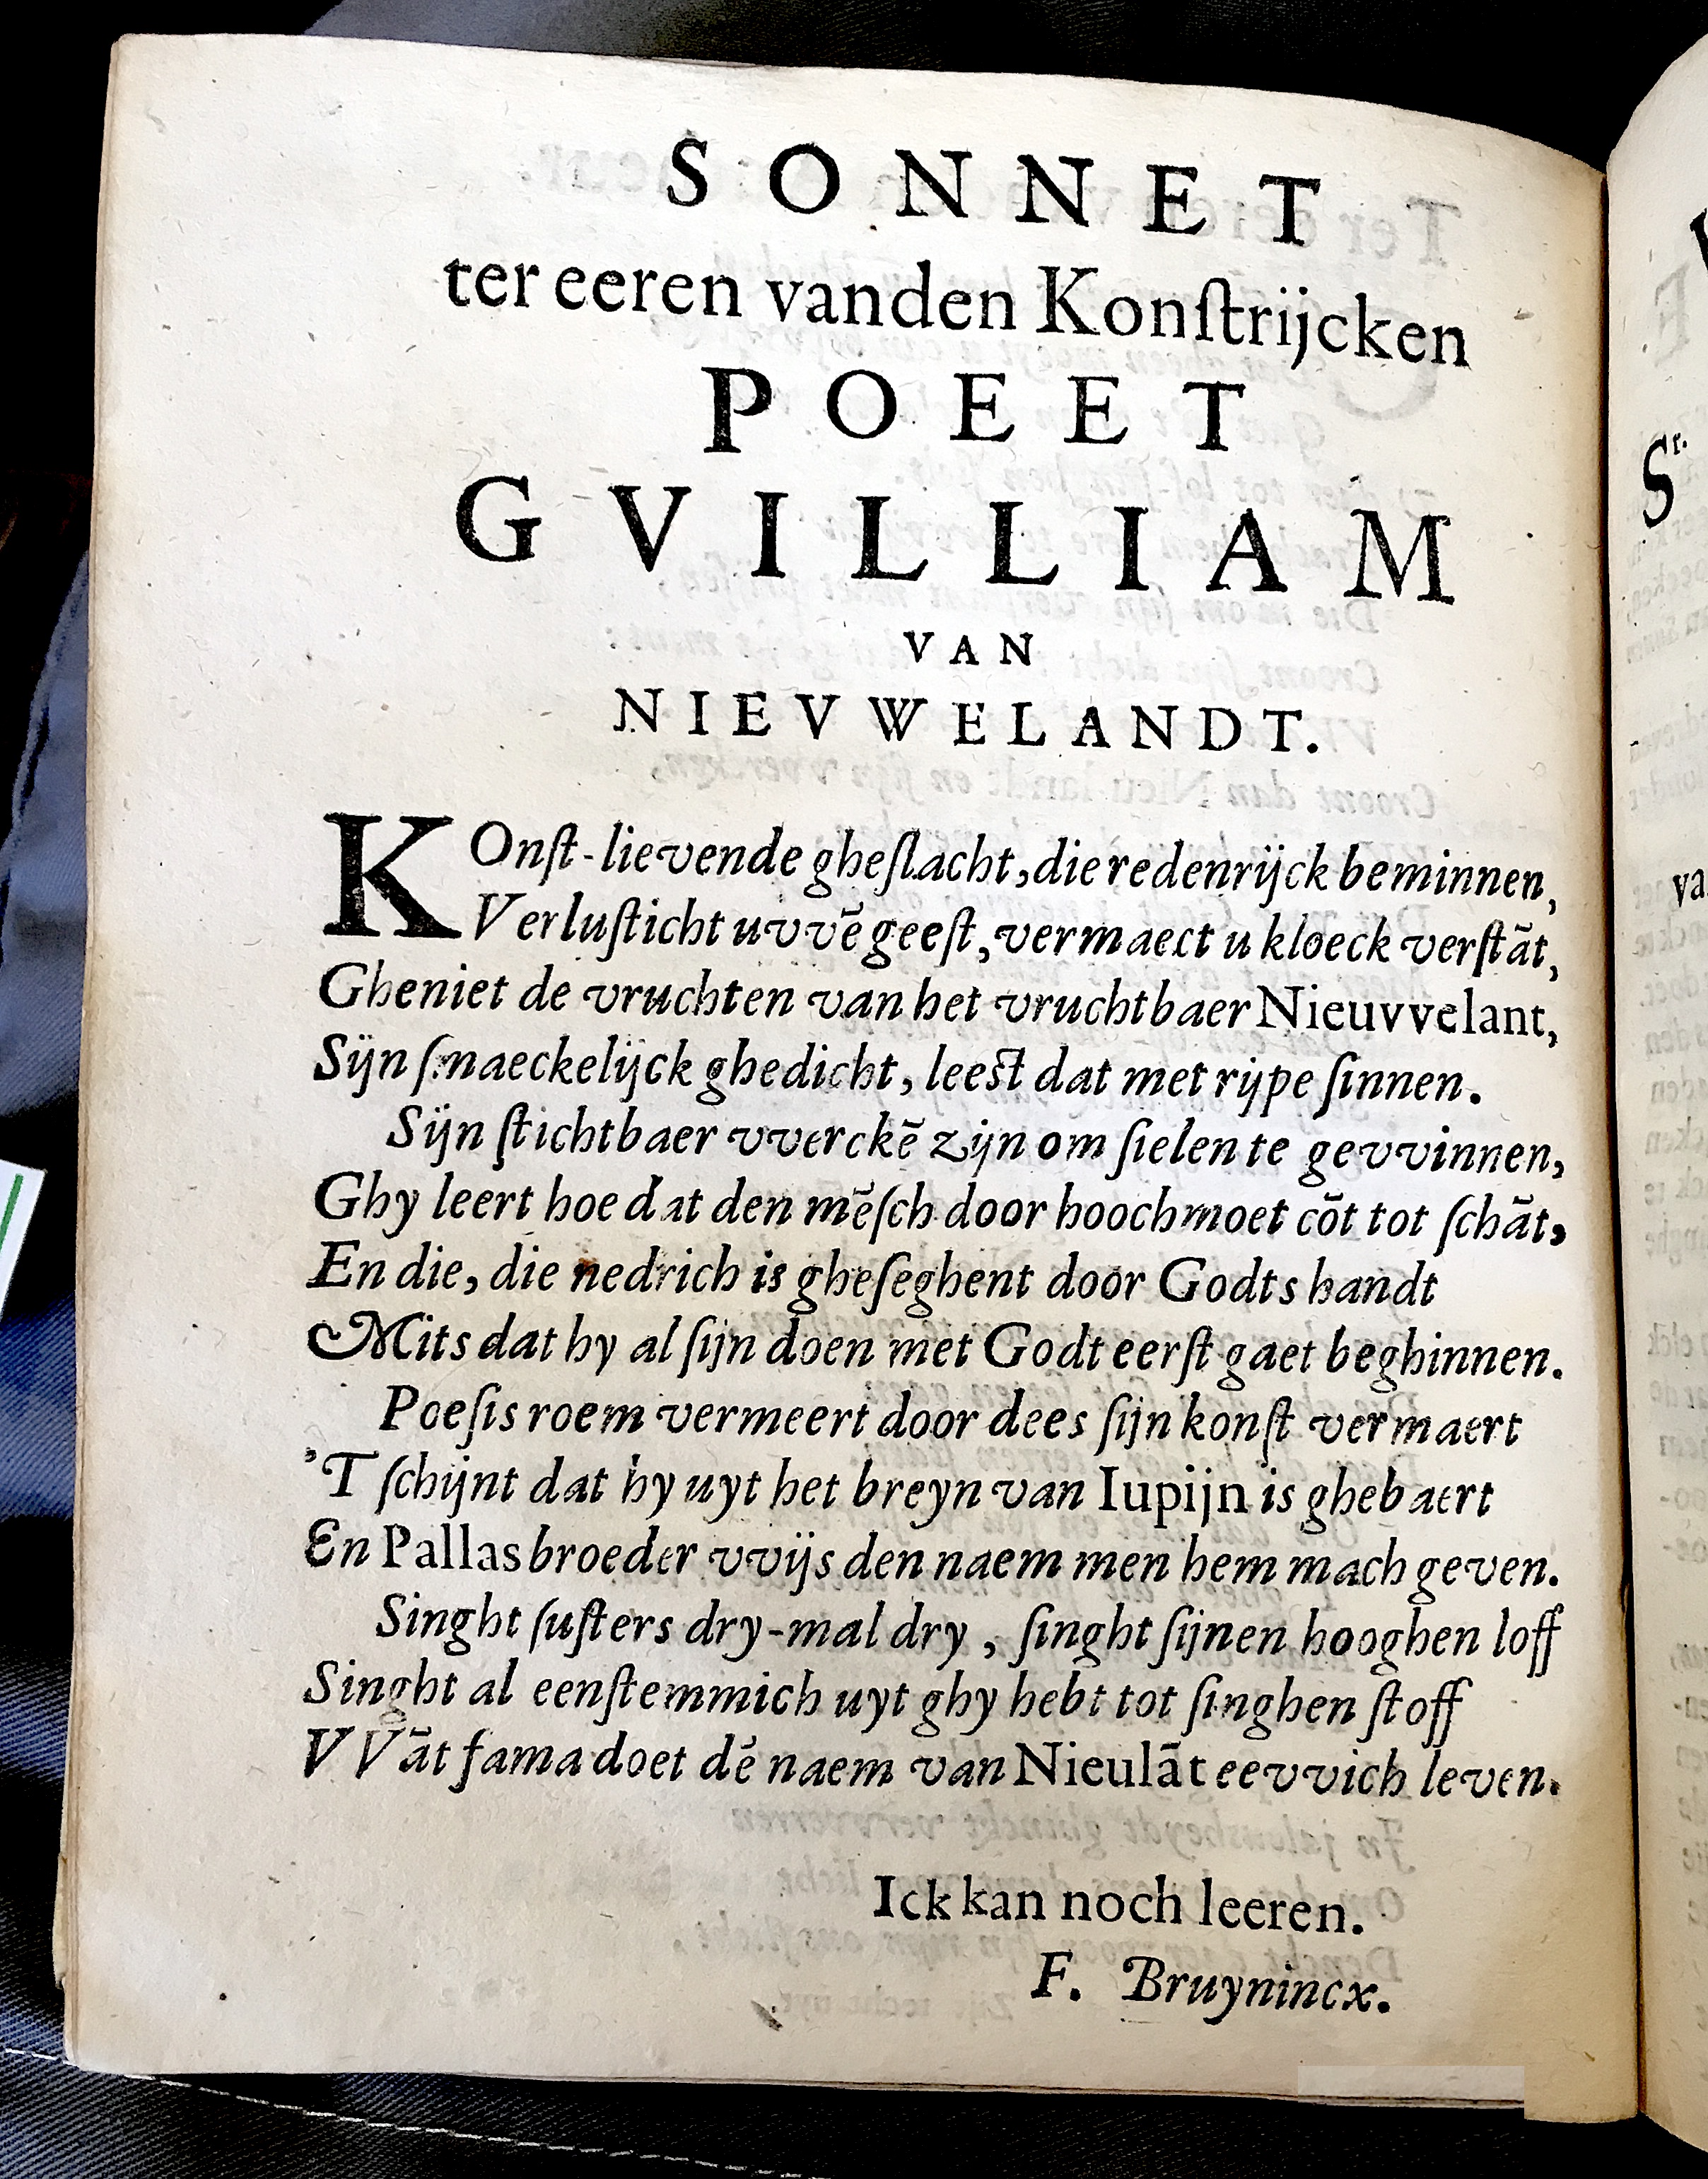 SONNET
ter eeren vanden Konſtrijcken
POEET
GVILLIAM
VAN
NIEVWELANDT.
KOnſt-lievende gheſlacht, die redenrijck beminnen,
Verluſticht uvvē geeſt, vermaect u kloeck verſtāt,
Gheniet de vruchten van het vruchtbaer Nieuvvelant,
Sijn ſmaeckelijck ghedicht, leest dat met rijpe ſinnen.
Sijn ſtichtbaer vverckē zijn om ſielen te gevvinnen,
Ghy leert hoe dat den mēſch door hoochmoet cōt tot ſchāt,
En die, die nedrich is gheſeghent door Godts handt
Mits dat hy al ſijn doen met Godt eerſt gaet beghinnen.
Poeſis roem vermeert door dees ſijn konſt vermaert
'T ſchijnt dat hy uyt het breyn van Iupijn is ghebaert
En Pallas broeder vvijs den naem men hem mach geven.
Singht ſuſters dry-mal dry, ſinght ſijnen hooghen loff
Singht al eenſtemmich uyt ghy hebt tot ſinghen ſtoff
VVāt fama doet dē naem van Nieulāt eevvich leven.
Ick kan noch leeren.
F. Bruynincx.
Sr.
va